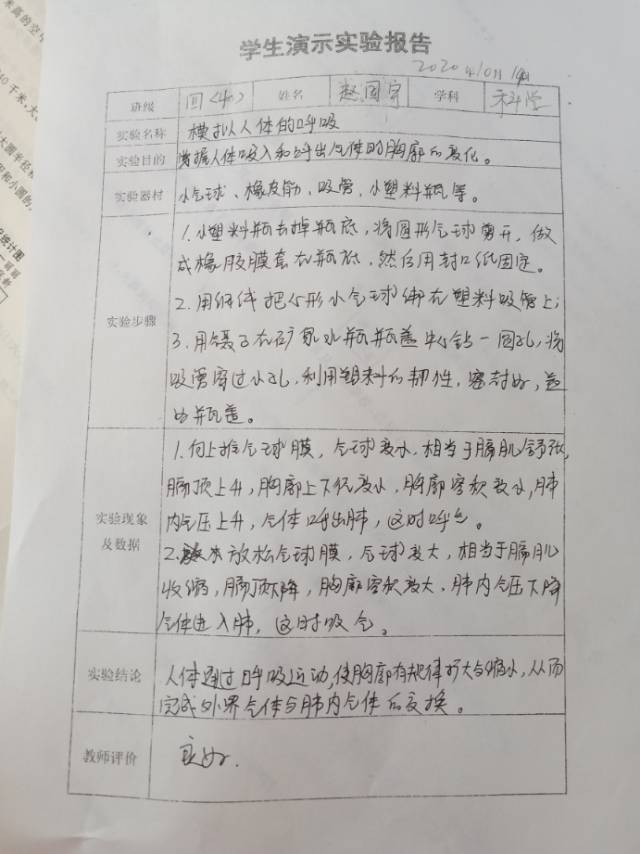 学生演示实验报告
2020年10月14日
班级 四<4> 姓名 赵国宇 学科 科学
实验名称 模拟人体的呼吸
实验目的 掌握人体吸入和呼出气体时胸廓的变化。
实验器材 小气球、橡皮筋、吸管、小塑料瓶等。
实验步骤
1.小塑料瓶去掉瓶底,将圆形气球剪开,做
成橡胶膜套在瓶底,然后用封口纸固定。
2.用细线把小形小气球绑在塑料吸管上;
3.用镊子在矿泉水瓶瓶盖中心钻一圆孔,将
吸管穿过小孔,利用塑料的韧性,密封好,盖
Upper瓶盖。
实验现象
及数据
1.向上推气球膜,气球变小,相当于膈肌舒张,
膈顶上升,胸廓上下径变小,胸廓容积变小,肺
内气压上升,气体呼出肺,这时呼气。
2.放松气球膜,气球变大,相当于膈肌
收缩,膈顶下降,胸廓容积变大,肺内气压下降
气体进入肺,这时吸气。
实验结论
人体通过呼吸运动,使胸廓有规律扩大与缩小,从而
完成外界气体与肺内气体的交换。
教师评价 良好.